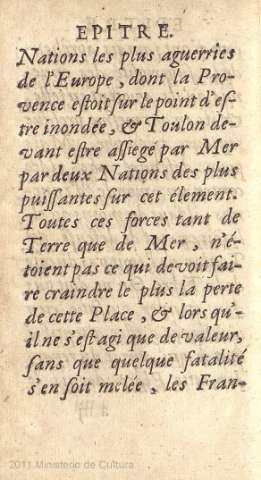 EPITRE.
Nations les plus aguerries
de l'Europe, dont la Pro-
vence estoit sur le point d'es-
tre inondée, & Toulon de-
vant estre assiegé par Mer
par deux Nations des plus
puissantes sur cet élement.
Toutes ces forces tant de
Terre que de Mer, n'é-
toient pas ce qui devoit fai-
re craindre le plus la perte
de cette Place, & lors qu'-
il ne s'est agi que de valeur,
sans que quelque fatalité
s'en soit mêlée, les Fran-
2011 Ministerio de Cultura